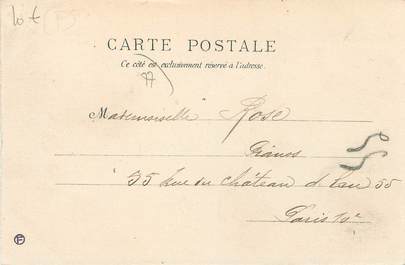 10 €
CARTE POSTALE
Ce côté est exclusivement réservé à l'adresse.
77
Mademoiselle Rose
55
35 Rue du Château d'Eau 55
Paris 10e